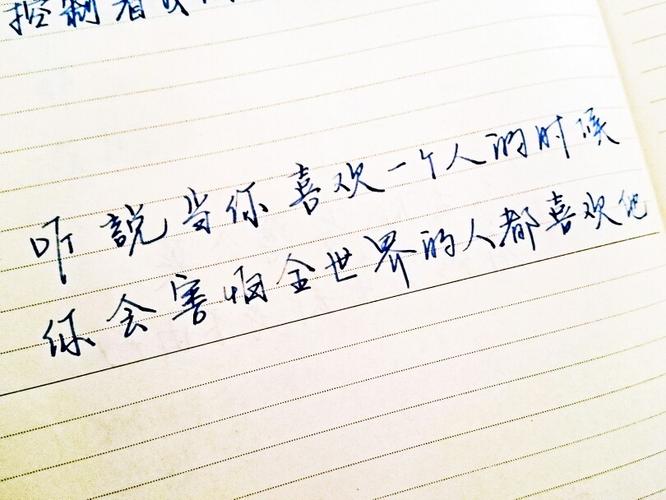 控制着我
听說当你喜欢一个人的时候
你会害怕全世界的人都喜欢他